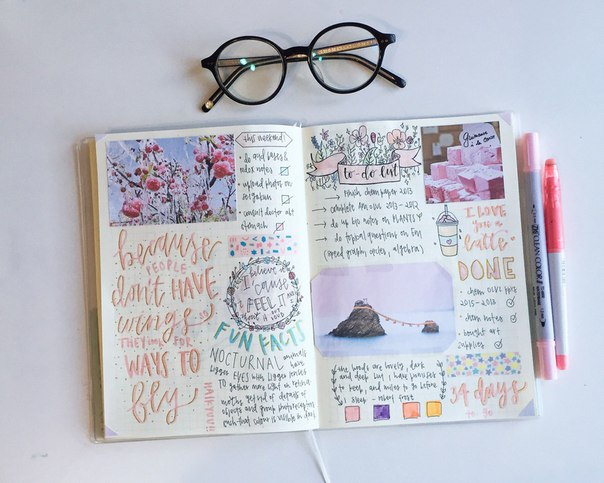 this weekend!
• do acid bases &
redox notes
• upload photos on
instagram
• consult doctor abt
stomach
because
PEOPLE
don't HAVE
wings... so
THEY look FOR
WAYS TO
fly
i believe
I 'cause
I FEEL IT
FUN FACTS
NOCTURNAL animals
have
bigger EYES with bigger lenses
TO gather more light on retina
objects and
each that colour is visible in day
to-do list
→ finish chem paper 2013
→ complete 2012 - 2013
→ do up bio notes on PLANTS
→ do topical questions on EM
(speed graph, circles, algebra)
guimauve
à la rose
I LOVE
you a
latte
DONE
• chem OLVL PYP
2015 - 2013
• chem notes
• bought art
supplies
the woods are lovely, dark
and deep but i have promises
to keep, and miles to go before
i sleep - robert frost
34 days
to go
ZIG CLEAN COLOR